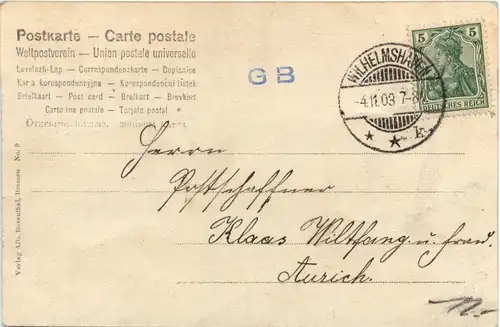 Postkarte – Carte postale
Weltpostverein – Union postale universelle
Levelező-Lap – Correspondenzkarte – Dopisnice
Karta korespondencyjna – Korespondenčni listek
Briefkaart – Post card – Brefkort – Brevkort
Cartolina postale – Tarjeta postal
G B
WILHELMSHAVEN
-4.11.03 7-8
* * k.
5 5
DEUTSCHES REICH
Herrn
Postschaffner
Klaas Wilthang u. Frau.
Aurich.
Verlag Alb. Rosenthal, Bremen No. 9